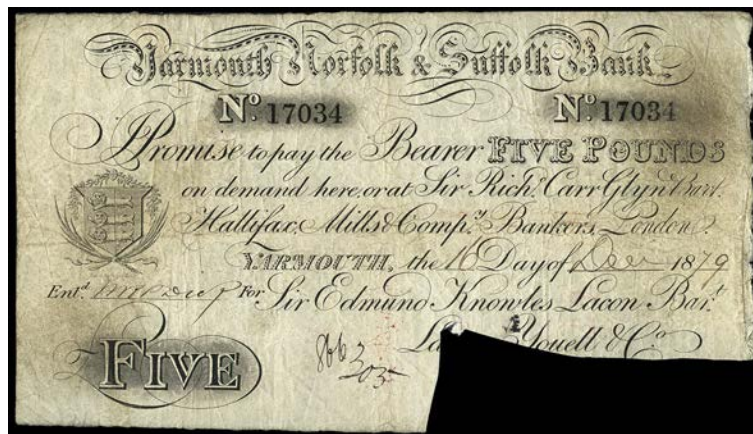 Yarmouth Norfolk & Suffolk Bank
No. 17034 No. 17034
I Promise to pay the Bearer FIVE POUNDS
on demand here, or at Sir Richd. Carr Glyn Bart.
Hallifax, Mills & Compy. Bankers, London.
YARMOUTH, the 16 Day of Decr 1879
Entd. For Sir Edmund Knowles Lacon Bart.
Youell & Co.
£ FIVE